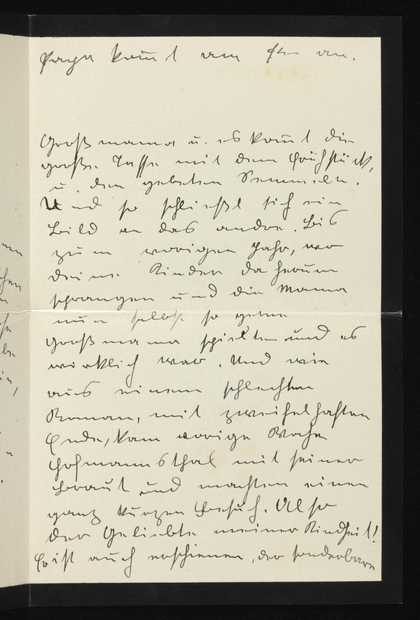 Papa kom̅t am 9ten an.
Großmama u. es kom̅t die
große Tasse mit dem Frühstück,
u. den gebeten Semmeln.
Und so schließt sich ein
Bild an das andre. Bis
zum vorigen Jahr, wo
deine Kinder da herum
sprangen und die Mama
nun selbst so gerne
Großmama spielten und es
wirklich war. Und wie
aus einem schlechten
Roman, mit zweifelhaften
Ende, kam vorige Woche
Hofmannsthal mit seiner
Braut und machten einen
ganz kurzen Besuch. Also
der Geliebte meiner Kindheit!
Er ist auch erschienen, der sonderbare